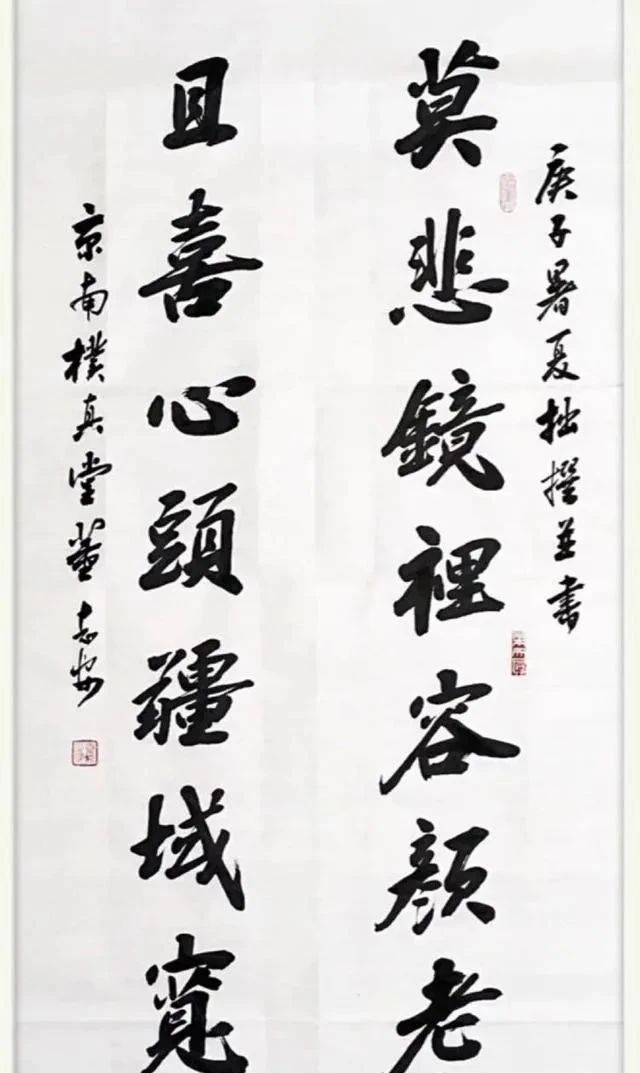 庚子暑夏拙撰並書
莫悲鏡裡容顏老
且喜心頭疆域寬
京南樸真堂董志安